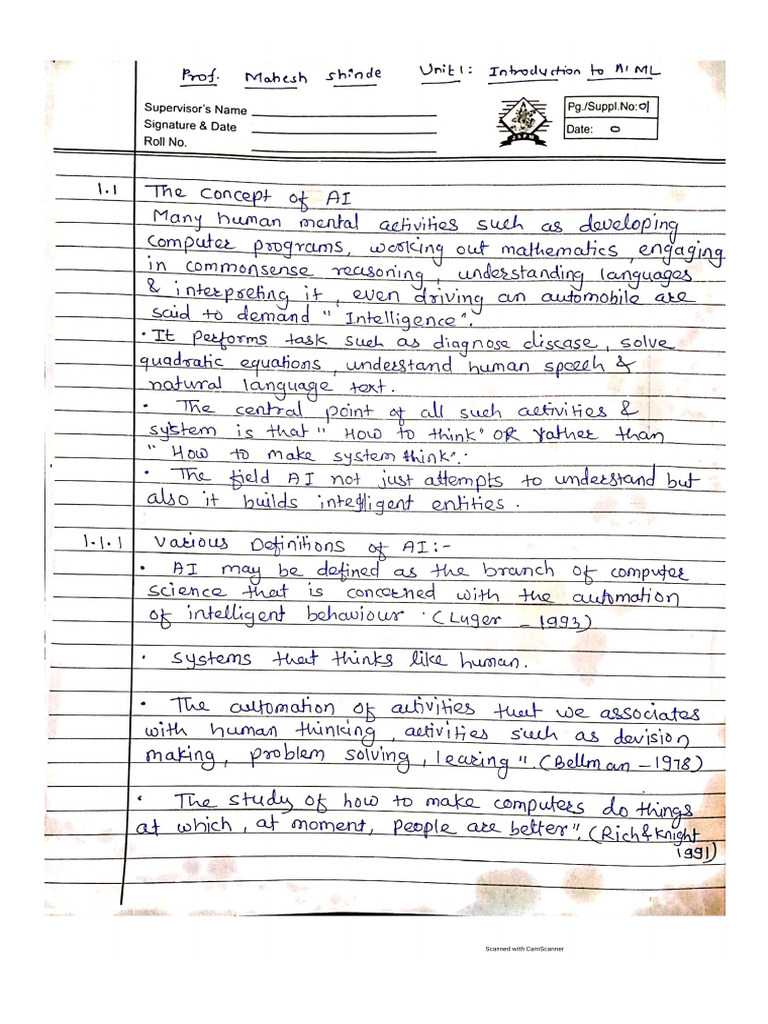 Prof. Mahesh Shinde Unit 1: Introduction to AI ML
Supervisor's Name
Signature & Date
Roll No.
Pg./Suppl.No:01
Date: 0
1.1 The concept of AI
Many human mental activities such as developing
computer programs, working out mathematics, engaging
in commonsense reasoning, understanding languages
& interpreting it, even driving an automobile are
said to demand "Intelligence".
• It performs task such as diagnose disease, solve
quadratic equations, understand human speech &
natural language text.
• The central point of all such activities &
system is that "How to think" OR rather than
"How to make system think".
• The field AI not just attempts to understand but
also it builds intelligent entities.
1.1.1 Various Definitions of AI:-
• AI may be defined as the branch of computer
science that is concerned with the automation
of intelligent behaviour. (Luger - 1993)
• Systems that thinks like human.
• The automation of activities that we associates
with human thinking, activities such as devision
making, problem solving, learing". (Bellman - 1978)
• The study of how to make computers do things
at which, at moment, people are better". (Rich & Knight
1991)
Scanned with CamScanner